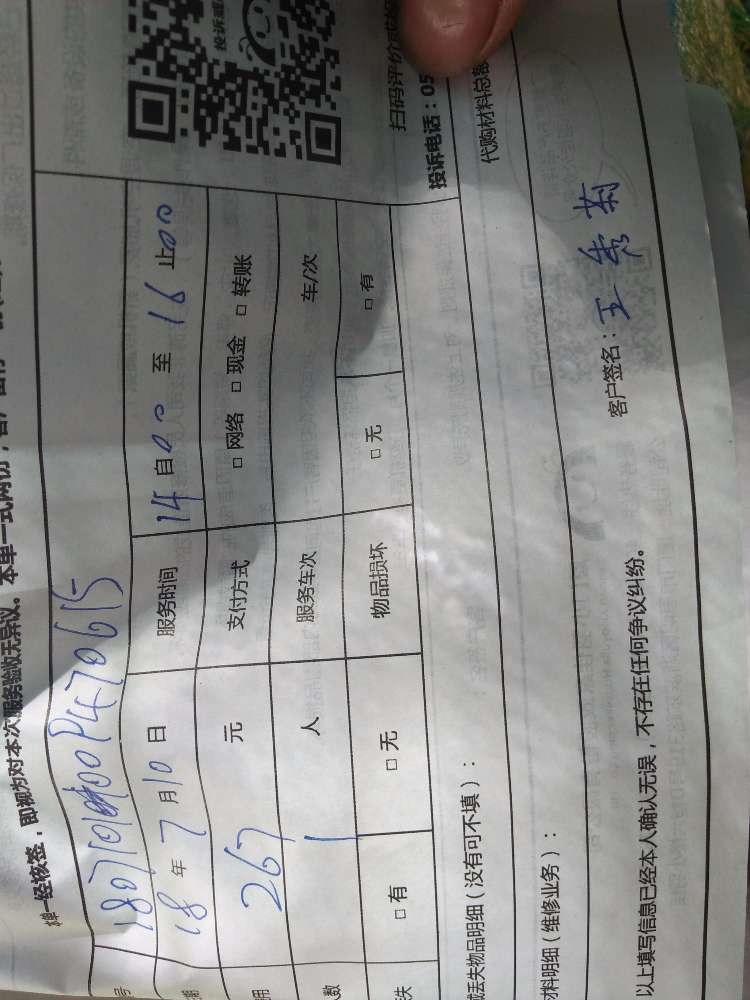 单一经核签，即视为对本次服务验收无异议。本单一式两份，客户留存
号
18 年 7 月 10 日 服务时间 14 自 00 至 16 止 00
用 267 元 支付方式 □ 网络 □ 现金 □ 转账
人数 1 人 服务车次 车/次
失 □ 有 □ 无 物品损坏 □ 无 □ 有
投诉
扫码评价或
投诉电话：05
或丢失物品明细（没有可不填）：
代购材料总额
材料明细（维修业务）：
客户签名：王秀菊
以上填写信息已经本人确认无误，不存在任何争议纠纷。